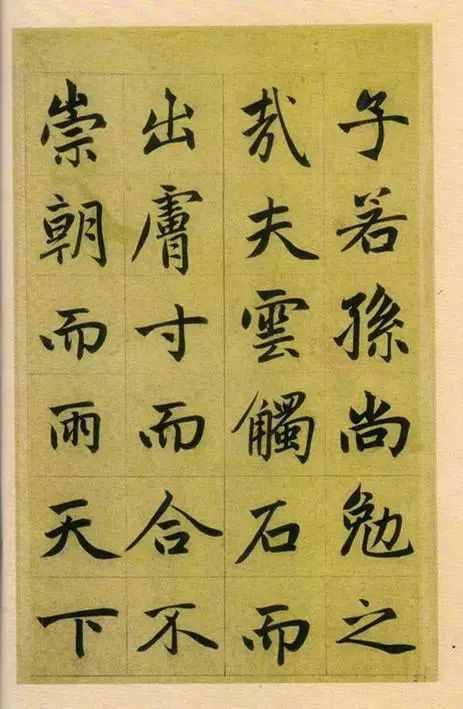 子若孫尚勉之
哉夫雲觸石而
出膚寸而合不
崇朝而雨天下